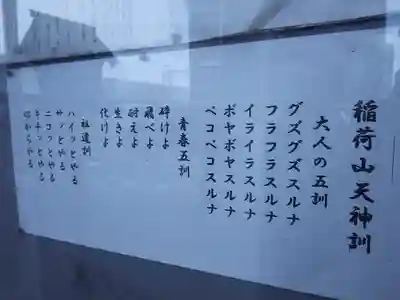 稲荷山天神訓
大人の五訓
グズグズスルナ
フラフラスルナ
イライラスルナ
ボヤボヤスルナ
ペコペコスルナ
青春五訓
砕けよ
飛べよ
耐えよ
生きよ
化けよ
祖遺訓
ハイッとやる
サッとやる
ニコッとやる
キチッとやる
心からやる